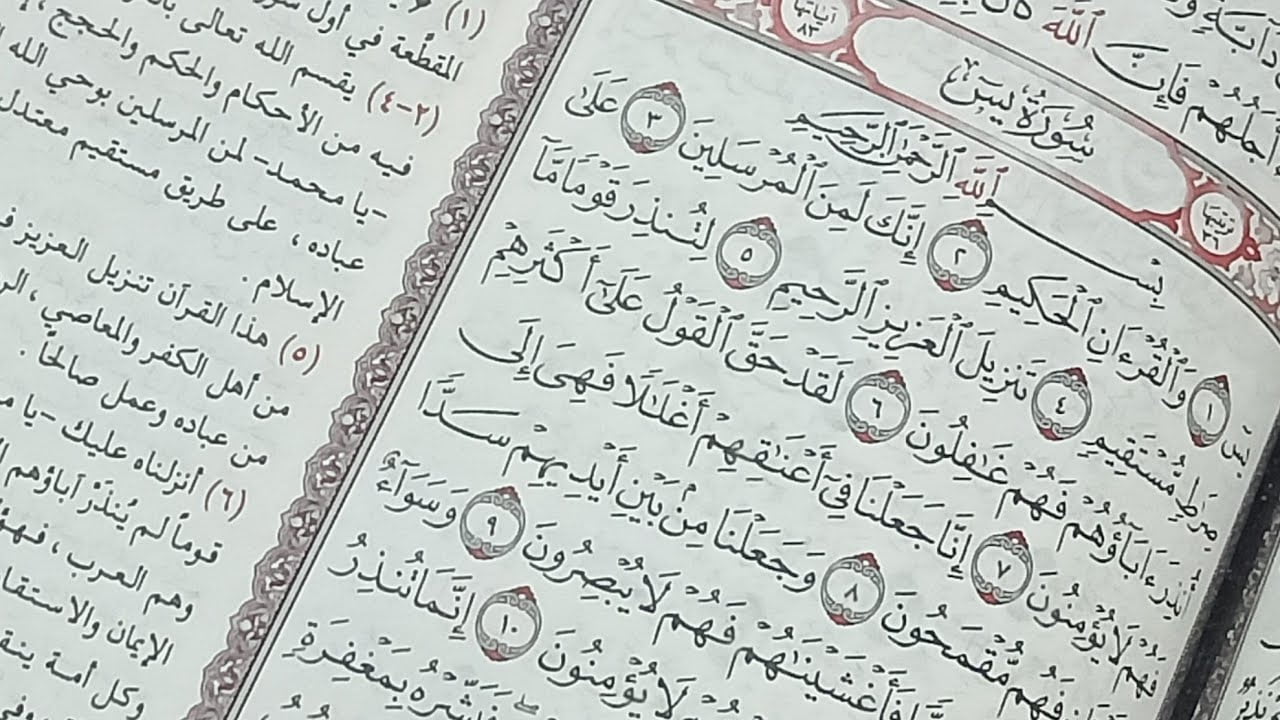 دَآبَّةٍ
أَجَلُهُمْ فَإِنَّ ٱللَّهَ
آياتها ٨٣
سُورَةُ يسٓ
ترتيبها ٣٦
بِسْمِ ٱللَّهِ ٱلرَّحْمَٰنِ ٱلرَّحِيمِ
يسٓ ١ وَٱلْقُرْءَانِ ٱلْحَكِيمِ ٢ إِنَّكَ لَمِنَ ٱلْمُرْسَلِينَ ٣ عَلَىٰ
صِرَٰطٍ مُّسْتَقِيمٍ ٤ تَنزِيلَ ٱلْعَزِيزِ ٱلرَّحِيمِ ٥ لِتُنذِرَ قَوْمًا مَّآ
أُنذِرَ ءَابَآؤُهُمْ فَهُمْ غَٰفِلُونَ ٦ لَقَدْ حَقَّ ٱلْقَوْلُ عَلَىٰٓ أَكْثَرِهِمْ
فَهُمْ لَا يُؤْمِنُونَ ٧ إِنَّا جَعَلْنَا فِىٓ أَعْنَٰقِهِمْ أَغْلَٰلًا فَهِىَ إِلَى
فَهُم مُّقْمَحُونَ ٨ وَجَعَلْنَا مِنۢ بَيْنِ أَيْدِيهِمْ سَدًّا
فَأَغْشَيْنَٰهُمْ فَهُمْ لَا يُبْصِرُونَ ٩ وَسَوَآءٌ
لَا يُؤْمِنُونَ ١٠ إِنَّمَا تُنذِرُ
فَبَشِّرْهُ بِمَغْفِرَةٍ
(١)
المقطّعة في أول
(٢-٤) يقسم الله تعالى
فيه من الأحكام والحكم والحجج
-يا محمد- لمن المرسلين بوحي الله
عباده، على طريق مستقيم معتدل
الإسلام.
(٥) هذا القرآن تنزيل العزيز
من أهل الكفر والمعاصي،
من عباده وعمل صالحاً.
(٦) أنزلناه عليك -يا
قوماً لم يُنذَرْ آباؤهم
وهم العرب،
الإيمان
وكل أمة